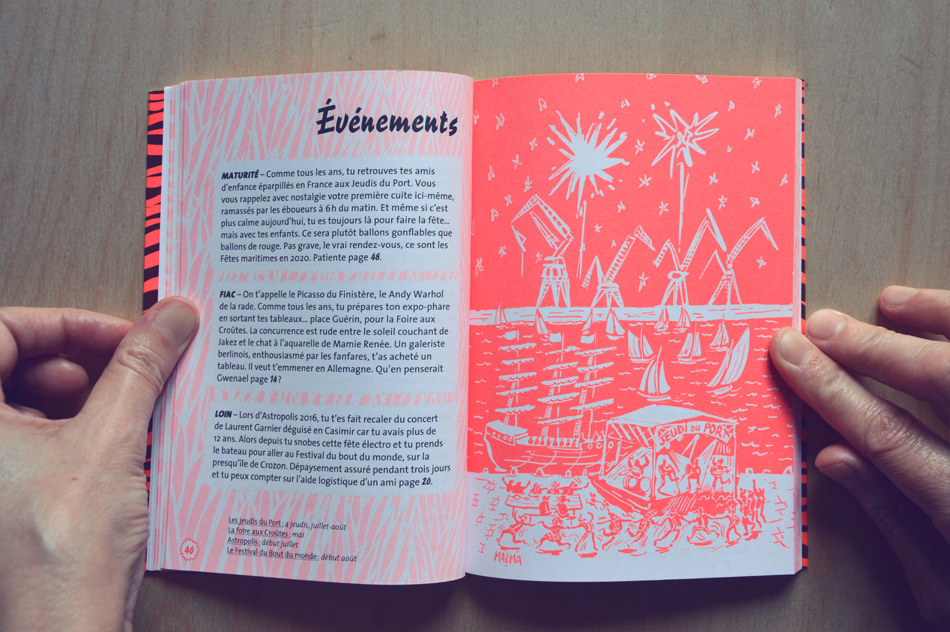 Événements
MATURITÉ – Comme tous les ans, tu retrouves tes amis
d'enfance éparpillés en France aux Jeudis du Port. Vous
vous rappelez avec nostalgie votre première cuite ici-même,
ramassés par les éboueurs à 6h du matin. Et même si c'est
plus calme aujourd'hui, tu es toujours là pour faire la fête...
mais avec tes enfants. Ce sera plutôt ballons gonflables que
ballons de rouge. Pas grave, le vrai rendez-vous, ce sont les
Fêtes maritimes en 2020. Patiente page 48.
FIAC – On t'appelle le Picasso du Finistère, le Andy Warhol
de la rade. Comme tous les ans, tu prépares ton expo-phare
en sortant tes tableaux... place Guérin, pour la Foire aux
Croûtes. La concurrence est rude entre le soleil couchant de
Jakez et le chat à l'aquarelle de Mamie Renée. Un galeriste
berlinois, enthousiasmé par les fanfares, t'as acheté un
tableau. Il veut t'emmener en Allemagne. Qu'en penserait
Gwenael page 14 ?
LOIN – Lors d'Astropolis 2016, tu t'es fait recaler du concert
de Laurent Garnier déguisé en Casimir car tu avais plus de
12 ans. Alors depuis tu snobes cette fête électro et tu prends
le bateau pour aller au Festival du bout du monde, sur la
presqu'île de Crozon. Dépaysement assuré pendant trois jours
et tu peux compter sur l'aide logistique d'un ami page 20.
Les jeudis du Port : 4 jeudis, juillet-août
La foire aux Croûtes : mai
Astropolis : début juillet
Le Festival du Bout du monde : début août
40
JEUDI DU PORT
MALMA